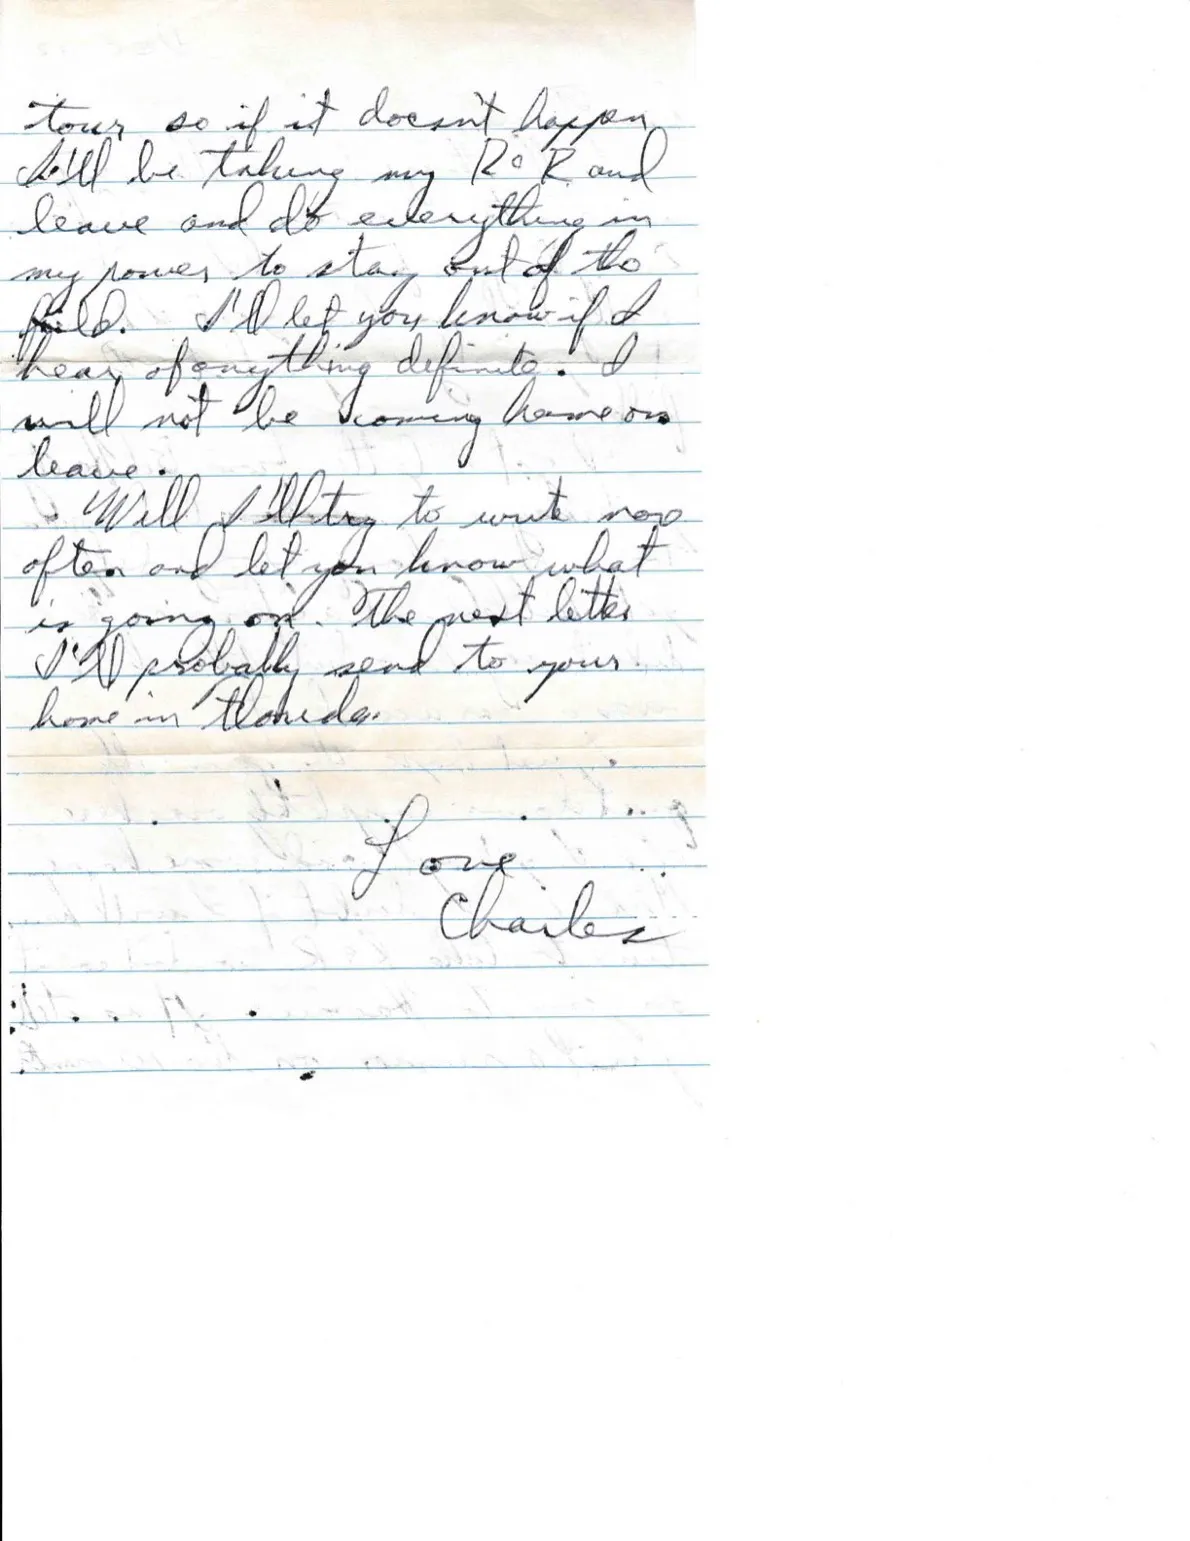 tour so if it doesn't happen
I'll be taking my R&R and
leave and do everything in
my power to stay out of the
field. I'll let you know if I
hear of anything definite. I
will not be coming home on
leave.
Well I'll try to write more
often and let you know what
is going on. The next letter
I'll probably send to your
home in Florida.
Love
Charles